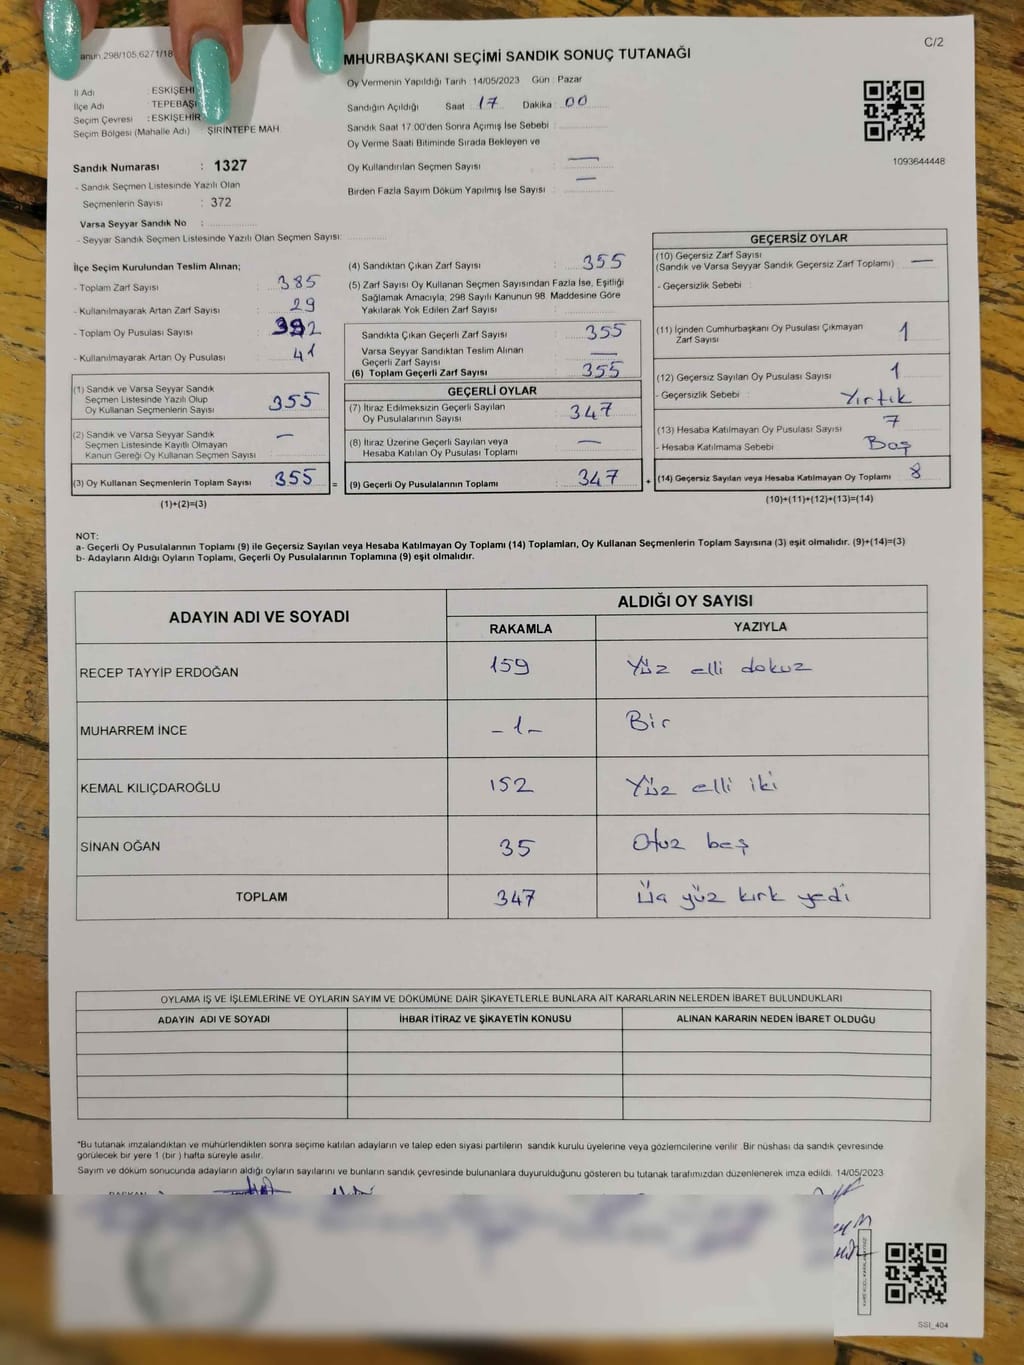 anun.298/105,6271/18
MHURBAŞKANI SEÇİMİ SANDIK SONUÇ TUTANAĞI
C/2
Oy Vermenin Yapıldığı Tarih :14/05/2023 Gün : Pazar
İl Adı : ESKİŞEHİ
İlçe Adı : TEPEBAŞI
Seçim Çevresi : ESKİŞEHİR
Seçim Bölgesi (Mahalle Adı) : ŞİRİNTEPE MAH.
Sandığın Açıldığı Saat : 17 Dakika : 00
Sandık Saat 17.00'den Sonra Açılmış İse Sebebi :
Oy Verme Saati Bitiminde Sırada Bekleyen ve
Oy Kullandırılan Seçmen Sayısı : —
Birden Fazla Sayım Döküm Yapılmış İse Sayısı : —
1093644448
Sandık Numarası : 1327
- Sandık Seçmen Listesinde Yazılı Olan
Seçmenlerin Sayısı : 372
Varsa Seyyar Sandık No :
- Seyyar Sandık Seçmen Listesinde Yazılı Olan Seçmen Sayısı:
İlçe Seçim Kurulundan Teslim Alınan;
- Toplam Zarf Sayısı : 385
- Kullanılmayarak Artan Zarf Sayısı : 29
- Toplam Oy Pusulası Sayısı :
- Kullanılmayarak Artan Oy Pusulası : 41
(1) Sandık ve Varsa Seyyar Sandık
Seçmen Listesinde Yazılı Olup
Oy Kullanan Seçmenlerin Sayısı : 355
(2) Sandık ve Varsa Seyyar Sandık
Seçmen Listesinde Kayıtlı Olmayan
Kanun Gereği Oy Kullanan Seçmen Sayısı : —
(3) Oy Kullanan Seçmenlerin Toplam Sayısı : 355
(1)+(2)=(3)
(4) Sandıktan Çıkan Zarf Sayısı : 355
(5) Zarf Sayısı Oy Kullanan Seçmen Sayısından Fazla İse, Eşitliği
Sağlamak Amacıyla; 298 Sayılı Kanunun 98. Maddesine Göre
Yakılarak Yok Edilen Zarf Sayısı :
Sandıkta Çıkan Geçerli Zarf Sayısı : 355
Varsa Seyyar Sandıktan Teslim Alınan
Geçerli Zarf Sayısı : —
(6) Toplam Geçerli Zarf Sayısı : 355
GEÇERLİ OYLAR
(7) İtiraz Edilmeksizin Geçerli Sayılan
Oy Pusulalarının Sayısı : 347
(8) İtiraz Üzerine Geçerli Sayılan veya
Hesaba Katılan Oy Pusulası Toplamı : —
= (9) Geçerli Oy Pusulalarının Toplamı : 347
GEÇERSİZ OYLAR
(10) Geçersiz Zarf Sayısı
(Sandık ve Varsa Seyyar Sandık Geçersiz Zarf Toplamı) : —
- Geçersizlik Sebebi :
(11) İçinden Cumhurbaşkanı Oy Pusulası Çıkmayan
Zarf Sayısı : 1
(12) Geçersiz Sayılan Oy Pusulası Sayısı : 1
- Geçersizlik Sebebi : Yırtık
(13) Hesaba Katılmayan Oy Pusulası Sayısı : 7
- Hesaba Katılmama Sebebi : Boş
+ (14) Geçersiz Sayılan veya Hesaba Katılmayan Oy Toplamı : 8
(10)+(11)+(12)+(13)=(14)
NOT:
a- Geçerli Oy Pusulalarının Toplamı (9) ile Geçersiz Sayılan veya Hesaba Katılmayan Oy Toplamı (14) Toplamları, Oy Kullanan Seçmenlerin Toplam Sayısına (3) eşit olmalıdır. (9)+(14)=(3)
b- Adayların Aldığı Oyların Toplamı, Geçerli Oy Pusulalarının Toplamına (9) eşit olmalıdır.
ADAYIN ADI VE SOYADI ALDIĞI OY SAYISI
RAKAMLA YAZIYLA
RECEP TAYYİP ERDOĞAN 159 Yüz elli dokuz
MUHARREM İNCE -1- Bir
KEMAL KILIÇDAROĞLU 152 Yüz elli iki
SİNAN OĞAN 35 Otuz beş
TOPLAM 347 Üç yüz kırk yedi
OYLAMA İŞ VE İŞLEMLERİNE VE OYLARIN SAYIM VE DÖKÜMÜNE DAİR ŞİKAYETLERLE BUNLARA AİT KARARLARIN NELERDEN İBARET BULUNDUKLARI
ADAYIN ADI VE SOYADI İHBAR İTİRAZ VE ŞİKAYETİN KONUSU ALINAN KARARIN NEDEN İBARET OLDUĞU
*Bu tutanak imzalandıktan ve mühürlendikten sonra seçime katılan adayların ve talep eden siyasi partilerin sandık kurulu üyelerine veya gözlemcilerine verilir. Bir nüshası da sandık çevresinde
görülecek bir yere 1 (bir ) hafta süreyle asılır.
Sayım ve döküm sonucunda adayların aldığı oyların sayılarını ve bunların sandık çevresinde bulunanlara duyurulduğunu gösteren bu tutanak tarafımızdan düzenlenerek imza edildi. 14/05/2023
SSI_404